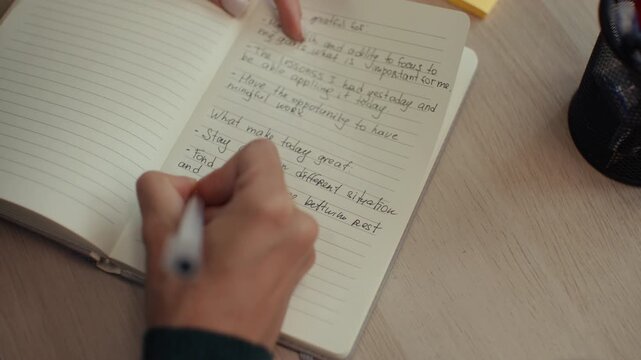 greatful for
and ability to focus to
my goals what is important for me
- The lessons I had yestaday and
be able applying it today
- Have the opportunity to have
mindful work
What make today great
- Stay in different situation
- Fond
and bettwine rest